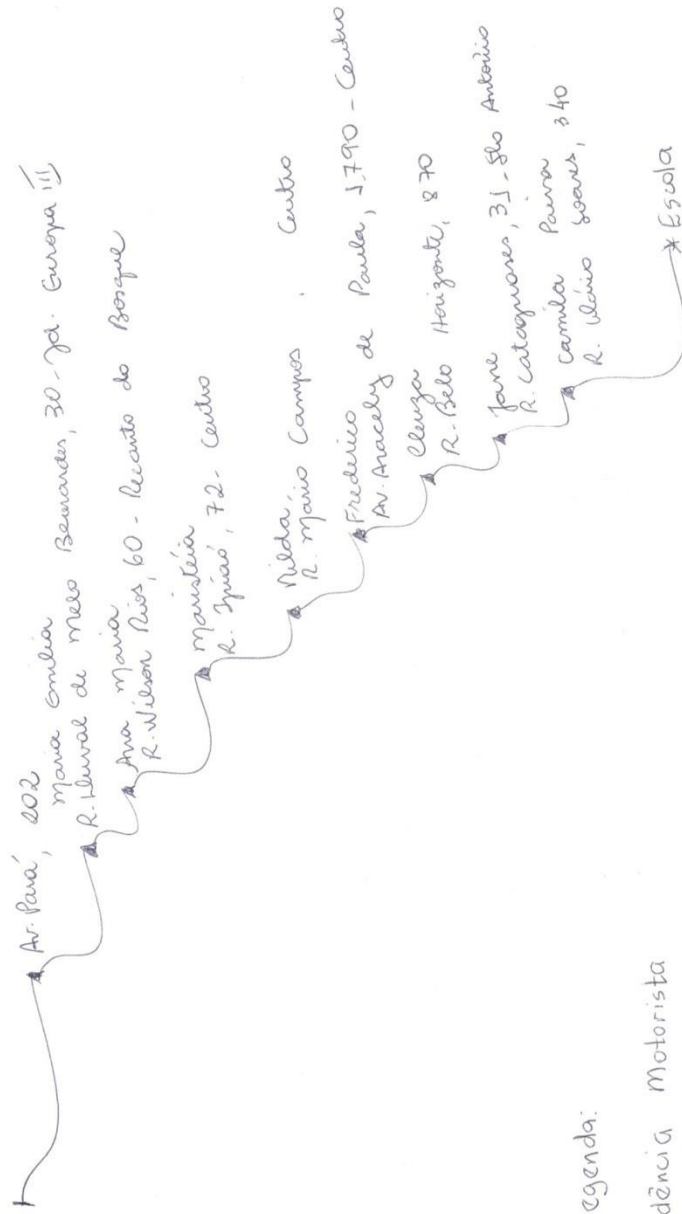 Av. Pará, 202
Maria Emilia
R. de Melo Bernardes, 30 - Jd. Europa III
Ana Maria
R. Wilson Rios, 60 - Recanto do Bosque
Maristéia
R. 72 - Centro
Nilda
R. Mário Campos, Centro
Frederico
Av. Aracely de Paula, 1.790 - Centro
Cleuza
R. Belo Horizonte, 870
Jane
R. Cataguases, 31 - São Antônio
Camila Paiva
R. Soares, 340
* Escola
egenda:
dência Motorista